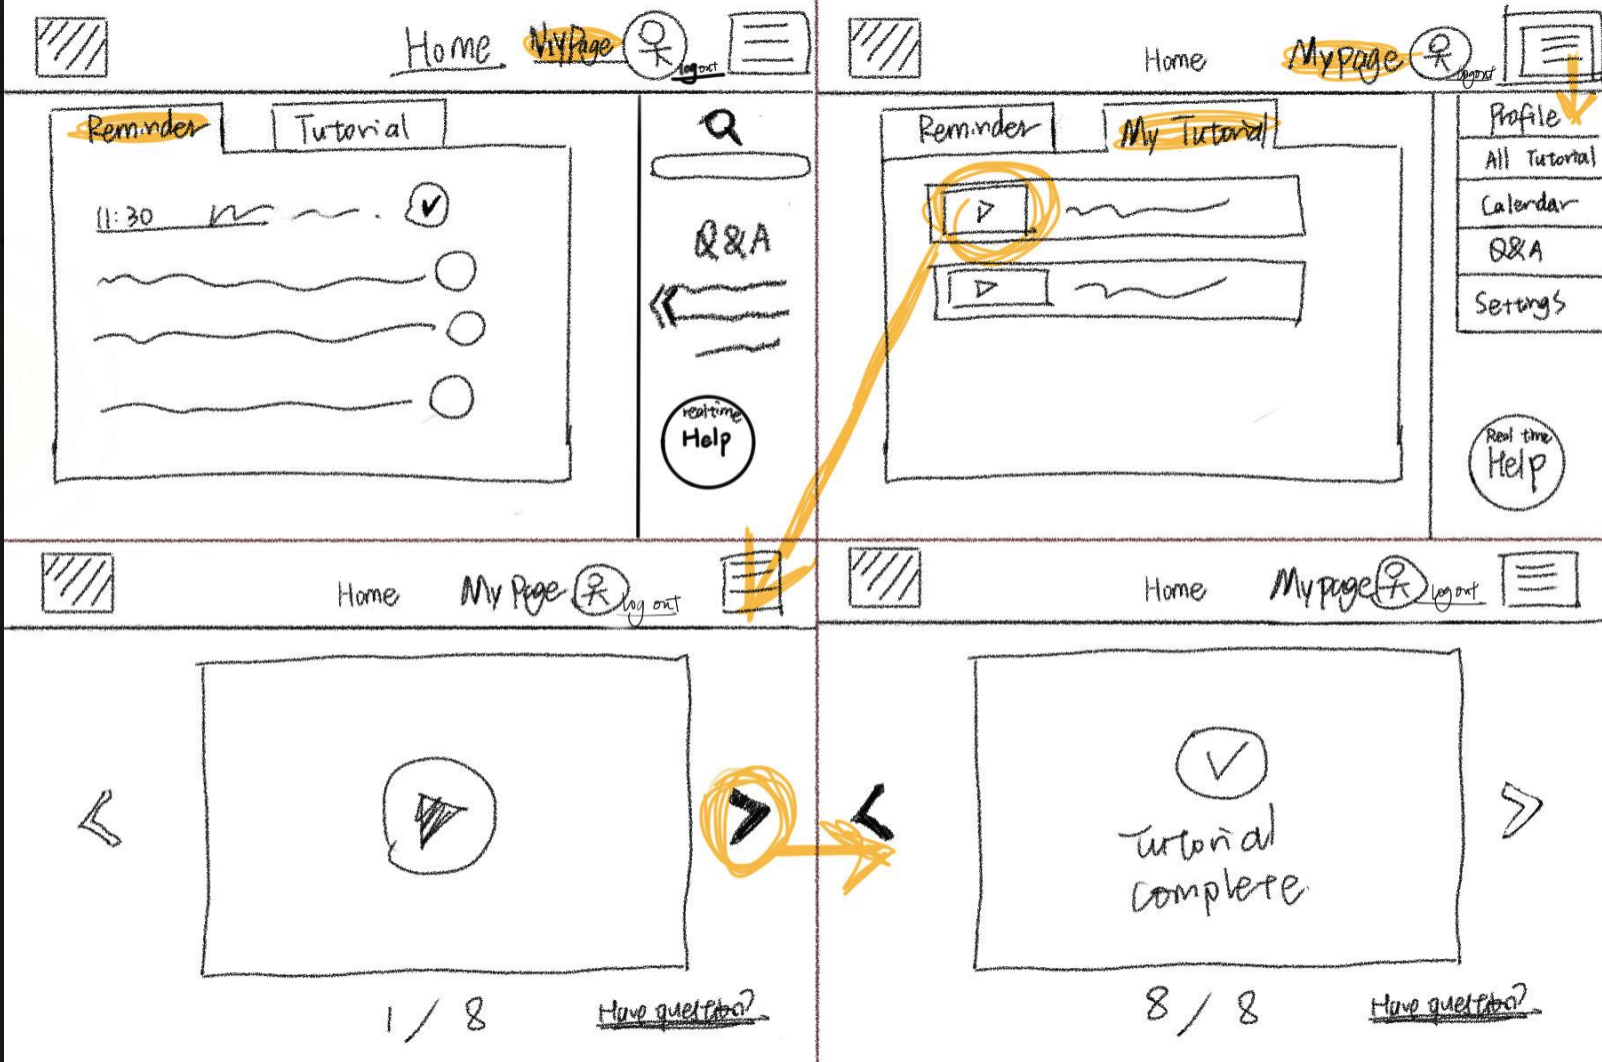 Home MyPage logout
Reminder Tutorial
11:30
Q&A
realtime
Help
Home Mypage logout
Reminder My Tutorial
Profile
All Tutorial
Calendar
Q&A
Settings
Real time
Help
Home My Page log out
1 / 8
Have question?
Home Mypage log out
Tutorial
complete
8 / 8
Have question?